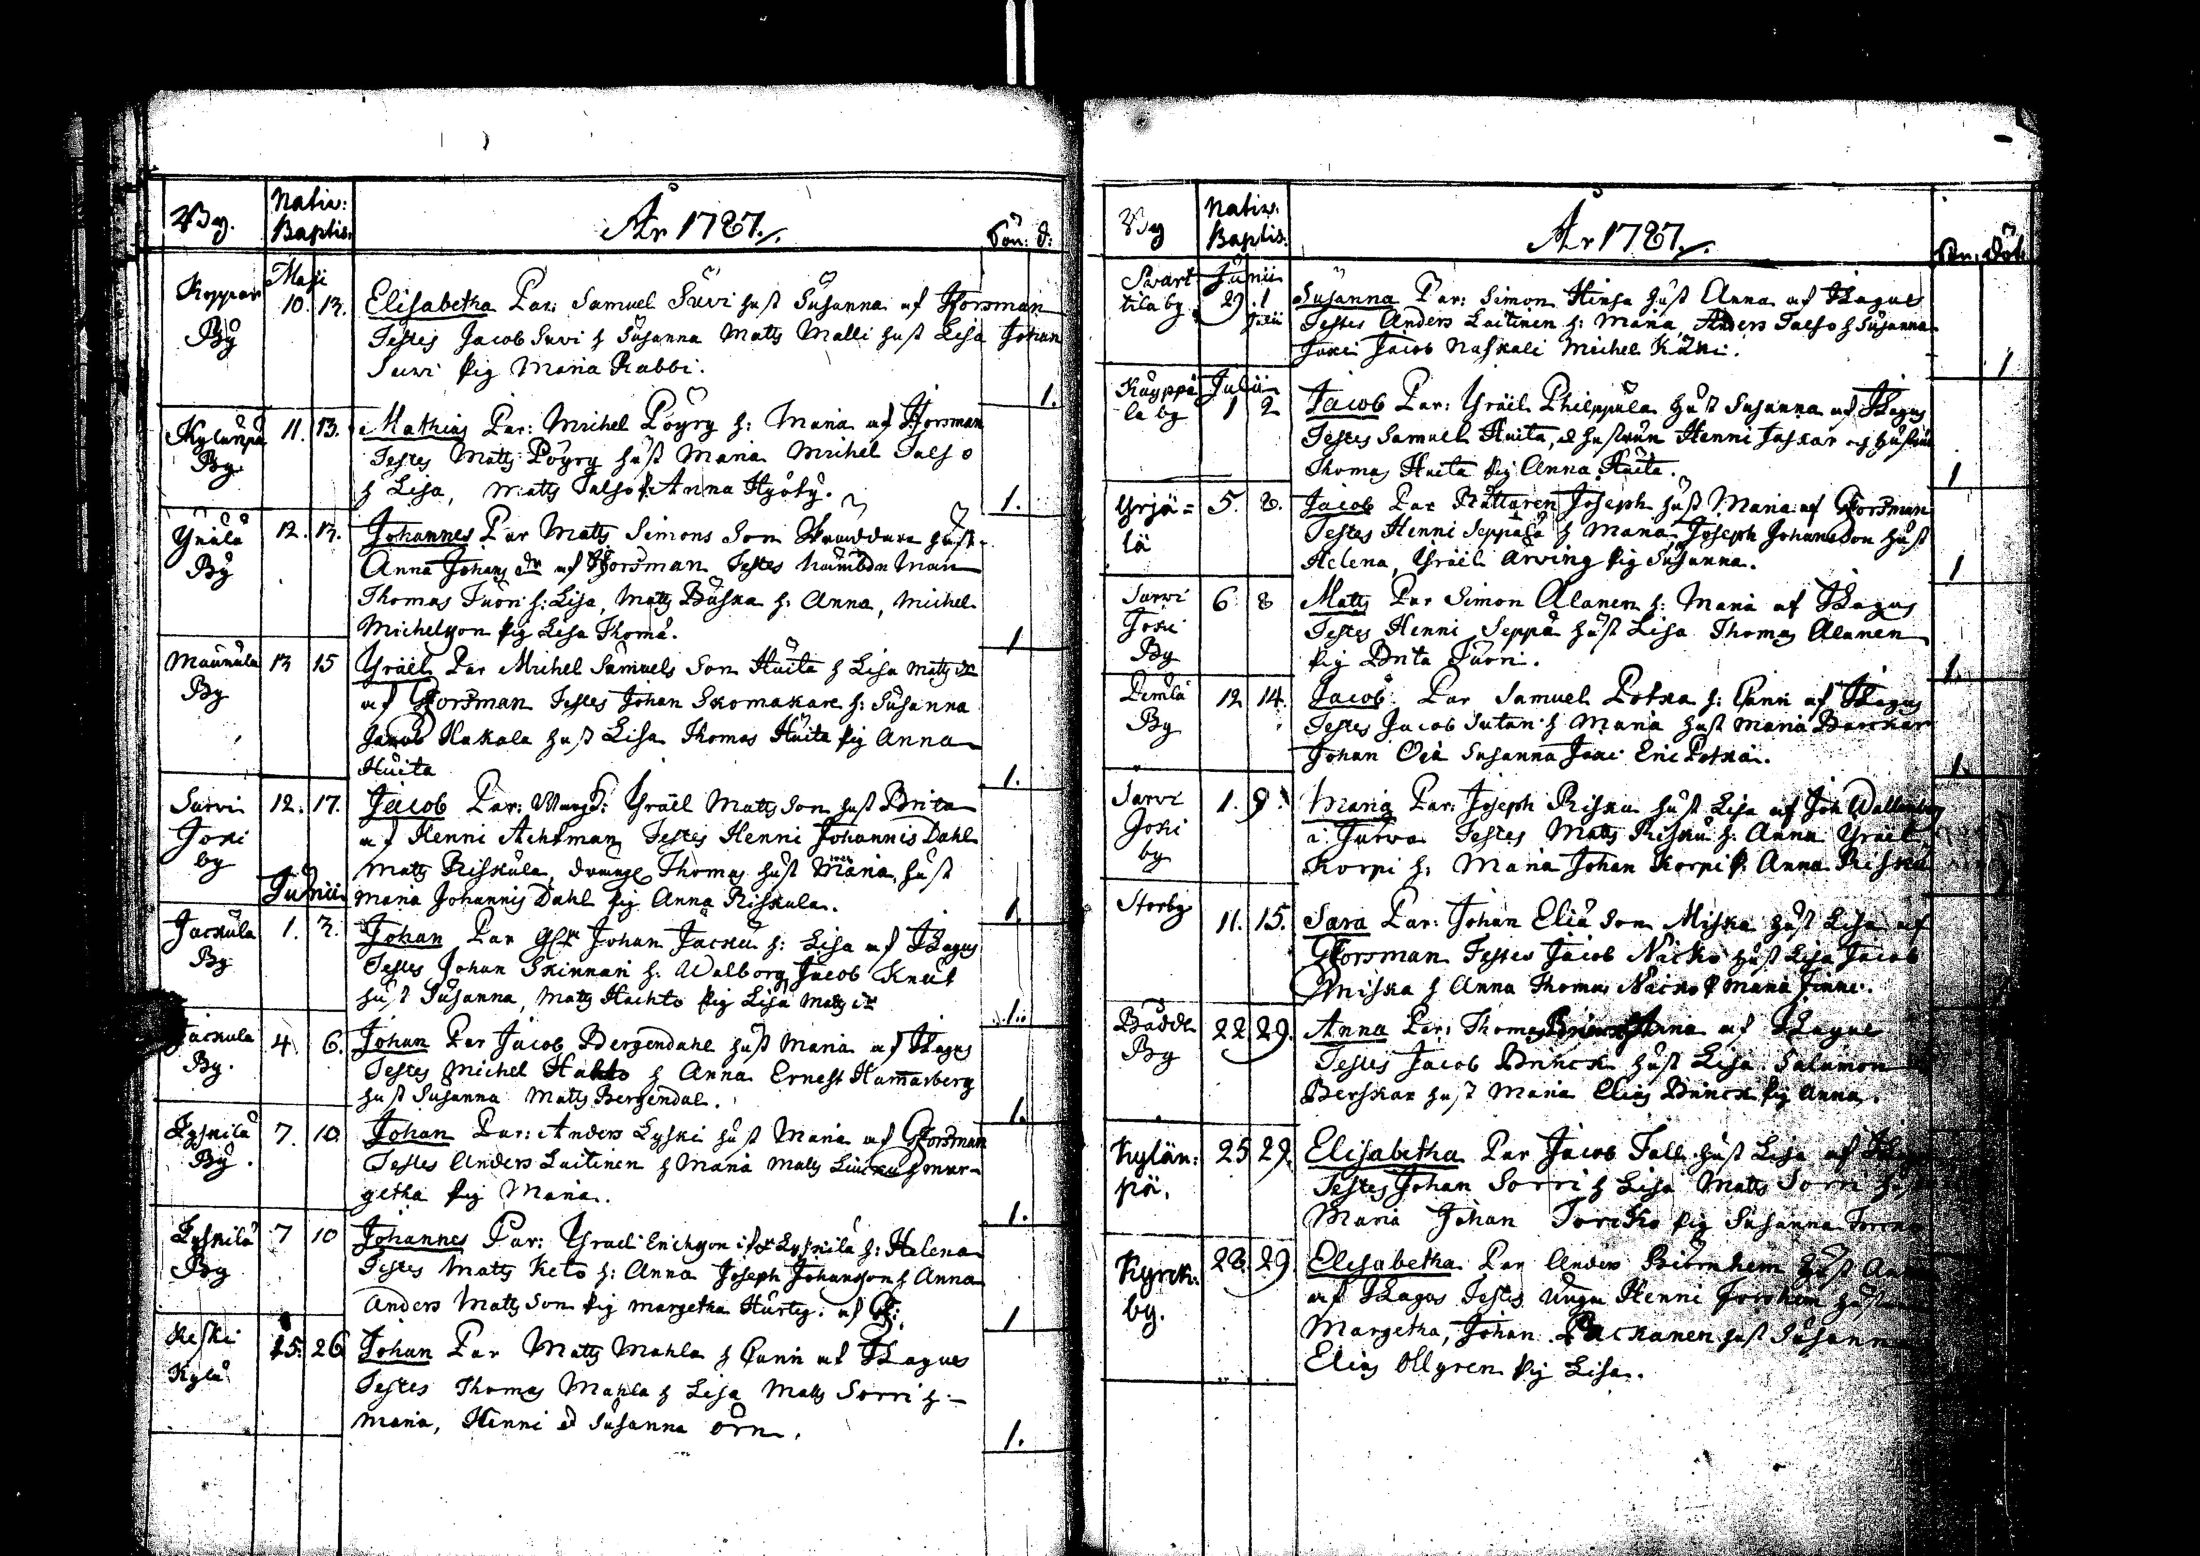 By.
Nativ:
Baptis:
År 1787.
Sön: d:
Maji
Koppar
By
10. 13. Elisabetha Par: Samuel Suvi hust Susanna af Forsman
Testes Jacob Suvi h Susanna Matts Malli hust Lisa Johan
Suvi pig Maria Rabbi.
1.
Kylänpä
By
11. 13. Mathias Par: Michel Pöyry h: Maria af Forsman
Testes Matts Pöyry hust Maria Michel Talso
h Lisa, Matts Talso p. Anna Hyöty.
1.
By
12. 13. Johannes Par Matts Simons Son hust
Anna Johans dr af Forsman Testes Nämbdn Man
Thomas Tuori h: Lisa, Matts h: Anna, Michel
Michelson pig Lisa Thomä.
1
Maunula
By
13 15 Yräel Par Michel Samuels Son Huita h Lisa Matts dr
af Forsman Testes Johan Skomakare h: Susanna
Jacob Hakala hust Lisa Thomas Huita pig Anna
Huita
1.
Jarvi
Joki
by
12. 17. Jacob Par: Yräel Matts Son hust Brita
af Henni Achtman Testes Henni Johannis Dahl
Matts Riskula, Thomas hust Maria, hust
Maria Johannis Dahl pig Anna Riskula.
1.
Junii
Jackula
By
1. 3. Johan Par Johan Jacku h: Lisa af Hagus
Testes Johan Skinnari h: Walborg Jacob Knut
hust Susanna, Matts Huhto pig Lisa Matts dr
1.
Jackula
By.
4 6. Johan Par Jacob Bergendahl hust Maria af Hagus
Testes Michel h Anna Ernest Hamarberg
hust Susanna Matts Bergendal.
1.
Lyskilä
By.
7. 10 Johan Par: Anders Lyski hust Maria af Forsman
Testes Anders Laitinen h Maria Matts h Mar-
getha pig Maria.
1.
Lyskilä
By
7 10 Johannes Par: Yräel Erichson Lyskilä h: Helena
Testes Matts Keto h: Anna Joseph Johansson h Anna
Anders Matts Son pig Margetha Hurtig. af
1
Keski
Kylä
25. 26 Johan Par Matts Mahla h Carin af Hagus
Testes Thomas Mahla h Lisa Matts Sorri h:
Maria, Henni d Susanna Örn.
1.
By
Nativ.
Baptis.
År 1787.
Sön: döt:
Junii
Svart
tila by
29. 1 Susanna Par: Simon Hinsa hust Anna af Hagus
Julii
Testes Anders Laitinen h: Maria, Anders Talso h Susanna
Joki Jacob Naskali Michel Käki.
1
Kauppi
la by
Julii
1 2 Jacob Par: Yräel Philppula hust Susanna af Hagus
Testes Samuel Huita, hustrun Henni Juskar och hustrun
Thomas Huita pig Anna Huita.
1
Yrjä-
lä
5. 8. Jacob Par Rättaren Joseph hust Maria af Forsman
Testes Henni Seppälä h Maria, Joseph Johans Son hust
Helena, Yräel Arving pig Susanna.
1
Jarvi
Joki
By
6 8 Matts Par Simon Alanen h: Maria af Hagus
Testes Henni Seppä hust Lisa Thomas Alanen
pig Brita Tuori.
1.
By
12 14. Jacob Par Samuel Potka h: Carin af Hagus
Testes Jacob Sutari h Maria hust Maria
Johan Oja Susanna Joki Eric Potka.
1.
Jarvi
Joki
by
1. 9. Maria Par: Joseph Risku hust Lisa af Joh Wallenberg
i Jurva Testes Matts Risku h: Anna Yräel
Korpi h: Maria Johan Korpi p: Anna Risku
Storby
11. 15. Sara Par: Johan Eliä Son Miska hust Lisa af
Forsman Testes Jacob Näcko hust Lisa Jacob
Miska h Anna Thomas Näcko p Maria Finne.
By
22 29. Anna Par: Thomas Brinck Anna af Hagus
Testes Jacob Brinck hust Lisa Salamon
Berskar hust Maria Elias Brinck pig Anna.
Kylän-
pä.
25 29. Elisabetha Par Jacob Tall hust Lisa af
Testes Johan Sorri h Lisa Matts Sorri
Maria Johan Torcko pig Susanna
Kyrck-
by.
28. 29. Elisabetha Par Anders hust
af Hagus Testes Unga Henni
Margetha, Johan Packanen hust Susanna
Elias Ollgren pig Lisa.